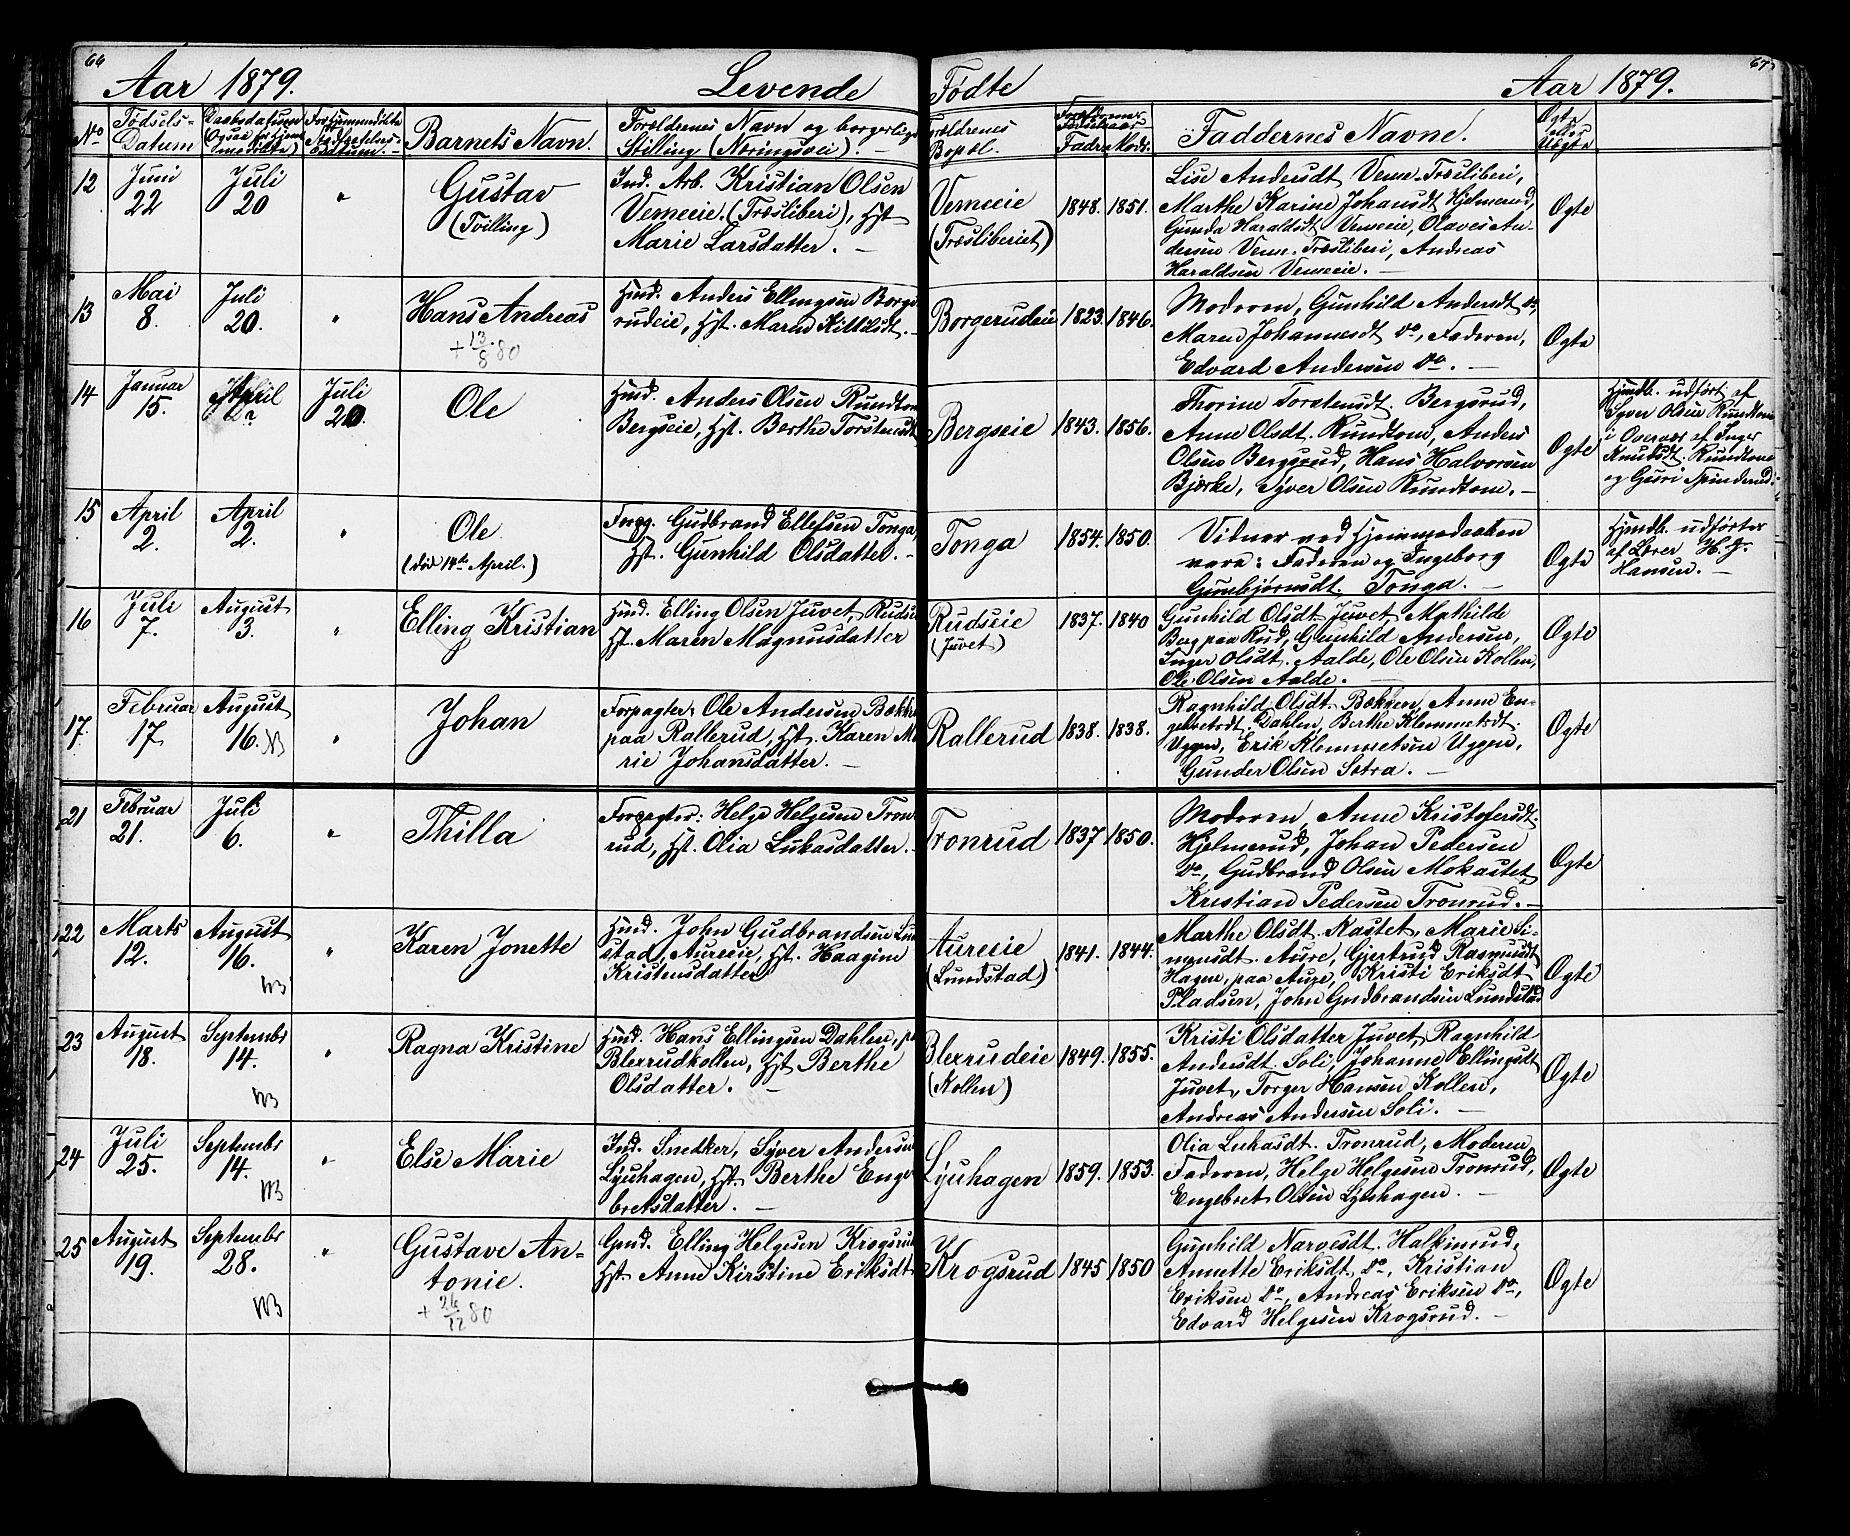 66
Aar 1879. Levende Fødte Aar 1879. 67.
No Fødsels-Datum Daabsdatum Barnets Navn. Forældrenes Navn og borgerlige Stilling (Næringsvei). Forældrenes Bopæl. Fadrs Mods. Faddernes Navne. Ægte eller Uægte
12 Juni 22 Juli 20 " Gustav (Tvilling)
Ind. Arb. Kristian Olsen
Vemeeie. (Træsliberi), Hst
Marie Larsdatter. —
Vemeeie (Træsliberiet) 1848. 1851.
Lise Andersdt Veme Træsliberi,
Marthe Karine Johansdt Hjelmerud,
Gunda Haraldsdt Vemeeie, Olaves An-
dersen Veme Træsliberi, Andreas
Haraldsen Vemeeie. —
Ægte
13 Mai 8. Juli 20. " Hans Andreas
+ 13/8 80
Hmd. Anders Ellingsen Borge-
rudeie, Hst. Maren Kittilsdt. —
Borgerudeie 1823. 1846.
Moderen, Gunhild Andersdt do,
Maren Johannesdt do, Faderen,
Edvard Andersen do. —
Ægte
14 Januar 15. April 2. Juli 20. Ole
Hmd. Anders Olsen Rundtom
Bergseie, Hst. Berthe Torstensdt
Bergseie 1843. 1856.
Thorine Torstensdt. Bergsrud,
Anne Olsdt. Rundtom, Anders
Olsen Bergsrud, Hans Halvorsen
Bjerke, Syver Olsen Rundtom. —
Ægte
Hjmdb. udført af
Syver Olsen Rundtom
i Overvær af Inger
Knudsdt. Rundtom
og Guri Spinderud.
15 April 2. April 2. " Ole
(død 14de April.)
Forpg. Gudbrand Ellefsen Tonga,
Hst. Gunhild Olsdatter. —
Tonga 1854. 1850.
Vidner ved Hjemmedaaben
vare: Faderen og Ingeborg
Gunbjørnsdt. Tonga. —
Ægte
Hjmdb. udførtes
af Lærer H. J.
Hansen. —
16 Juli 7. August 3. " Elling Kristian
Hmd. Elling Olsen Juvet, Rudseie
Hst. Maren Magnusdatter
Rudseie (Juvet) 1837. 1840
Gunhild Olsdt Juvet, Mathilde
Berg paa Rud, Gunhild Andersen,
Inger Olsdt. Aalde, Ole Olsen Kollen,
Ole Olsen Aalde. —
Ægte
17. Februar 17 August 16. NB " Johan
Forpagter: Ole Andersen Bækken
paa Rallerud, Hst. Karen Ma-
rie Johansdatter. —
Rallerud 1838. 1838.
Ragnhild Olsdt. Bækken, Anne En-
gebretsdt Dahlen, Berthe Klemmetsdt.
Uggen, Erik Klemmetsen Uggen,
Gunder Olsen Sætra. —
Ægte
21 Februar 21. Juli 6. " Thilla
Forpagter: Helge Helgesen Tron-
rud, Hst. Olia Lukasdatter. —
Tronrud 1837 1850.
Moderen, Anne Kristofersdt.
Hjelmerud, Johan Pedersen
do, Gudbrand Olsen Mokastet,
Kristian Pedersen Tronrud. —
Ægte
22 Marts 12. August 16. NB " Karen Jonette
Hmd. John Gudbrandsen Lund-
stad, Aureeie, Hst. Haagine
Kristensdatter
Aureeie (Lundstad) 1841. 1844.
Marthe Olsdt. Kastet, Marie Si-
mensdt. Aure, Gjertrud Rasmusdt
Hagen, paa Aure, Kristi Eriksdt
Pladsen, John Gudbrandsen Lundstad
Ægte
23 August 18. Septembr 14. NB " Ragna Kristine
Hmd. Hans Ellingsen Dahlen, paa
Blexrudkollen, Hst Berthe
Olsdatter. —
Blexrudeie (Kollen) 1849. 1855.
Kristi Olsdatter Juvet, Ragnhild
Andersdt. Soli, Johanne Ellingsdt
Juvet, Torger Hansen Kollen,
Andreas Andersen Soli. —
Ægte
24 Juli 25. Septembr 14. NB " Else Marie
Ind. Snedker, Syver Andersen
Lyuhagen, Hst Berthe Enge-
bretsdatter. —
Lyuhagen 1859. 1853.
Olia Lukasdt. Tronrud, Moderen,
Faderen, Helge Helgesen Tronrud,
Engebret Olsen Lyuhagen. —
Ægte
25 August 19. Septembr 28. NB " Gustave An-
tonie.
+ 26/12 80
Gmd. Elling Helgesen Krogsrud
Hst Anne Kirstine Eriksdt
Krogsrud 1845 1850
Gunhild Narvesdt. Halkinrud,
Annette Eriksdt. do, Kristian
Eriksen do, Andreas Eriksen do,
Edvard Helgesen Krogsrud. —
Ægte